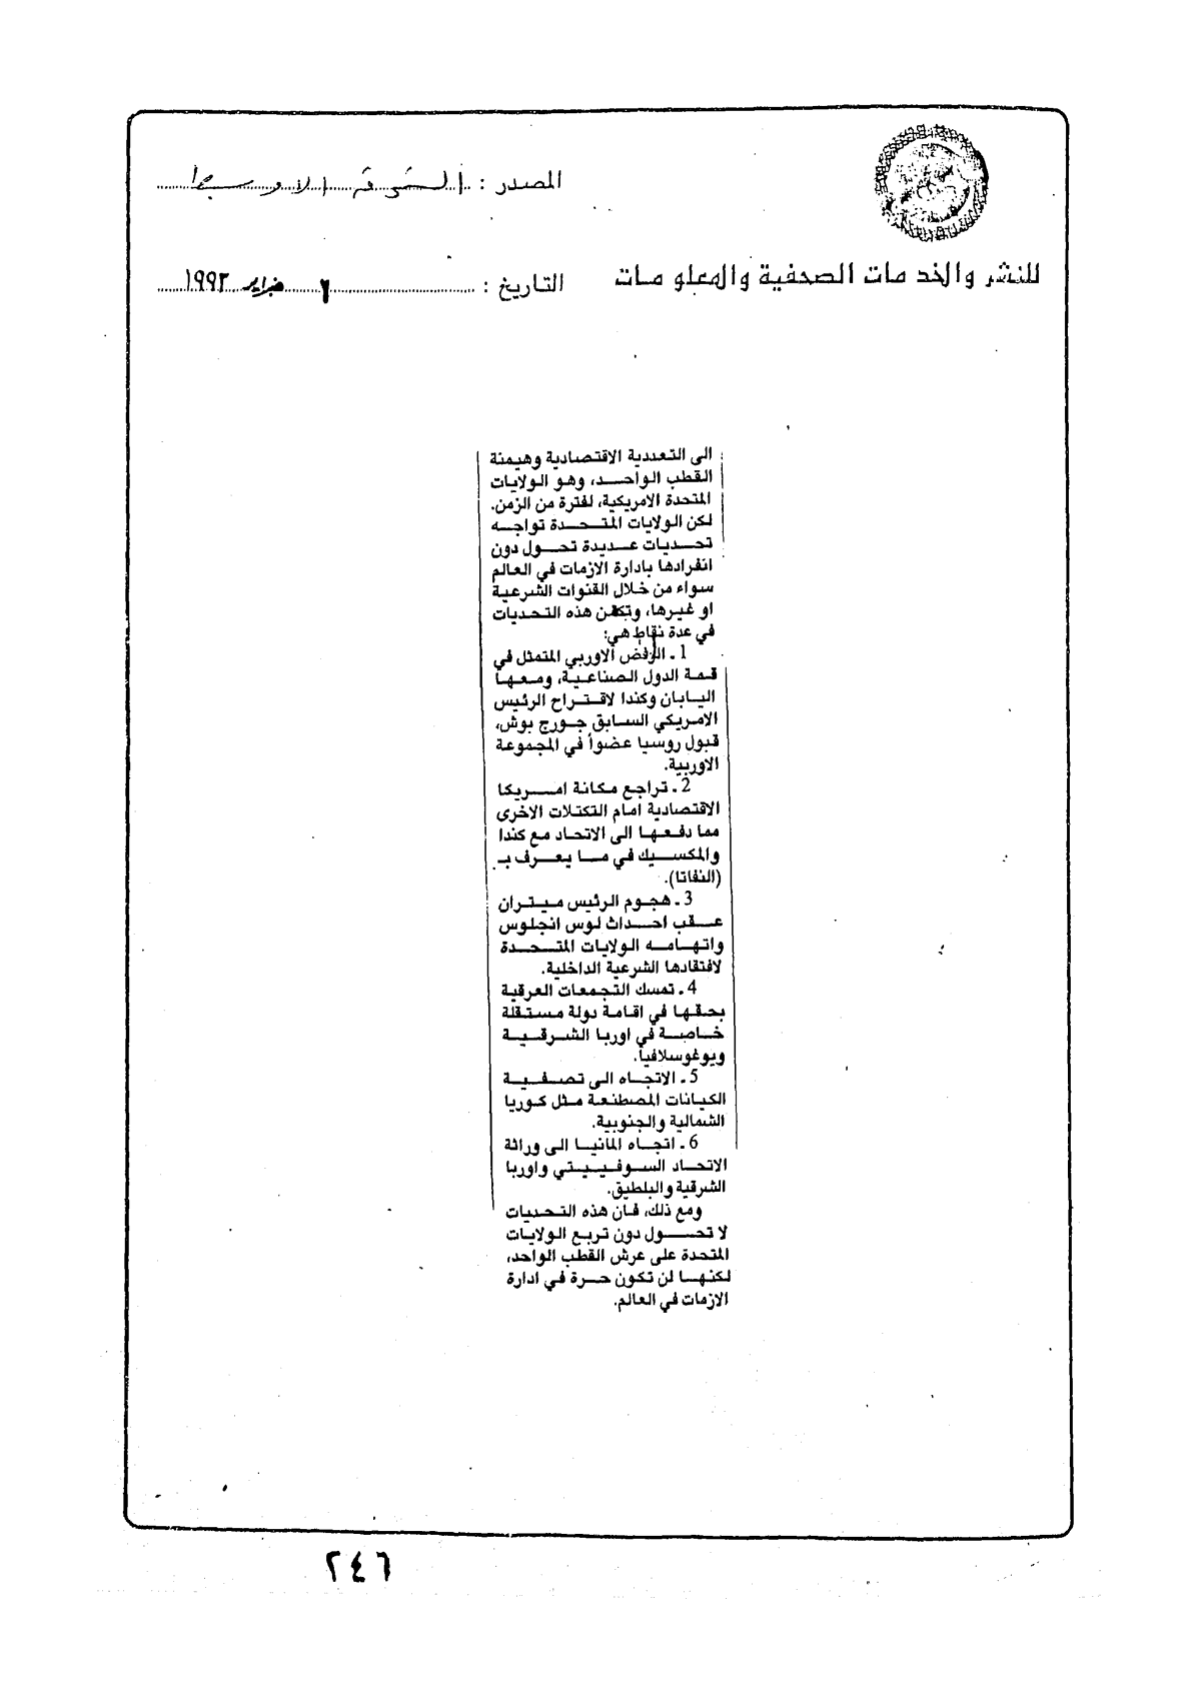 المصدر : الشرق الاوسط
للنشر والخدمات الصحفية والمعلومات
التاريخ : ٦ فبراير ١٩٩٣
الى التعددية الاقتصادية وهيمنة
القطب الواحد، وهو الولايات
المتحدة الامريكية، لفترة من الزمن.
لكن الولايات المتحدة تواجه
تحديات عديدة تحول دون
انفرادها بادارة الازمات في العالم
سواء من خلال القنوات الشرعية
او غيرها، وتكمن هذه التحديات
في عدة نقاط هي:
1 ـ الرفض الاوربي المتمثل في
قمة الدول الصناعية، ومعها
اليابان وكندا لاقتراح الرئيس
الامريكي السابق جورج بوش،
قبول روسيا عضواً في المجموعة
الاوربية.
2 ـ تراجع مكانة امريكا
الاقتصادية امام التكتلات الاخرى
مما دفعها الى الاتحاد مع كندا
والمكسيك في ما يعرف بـ
(النفاتا).
3 ـ هجوم الرئيس ميتران
عقب احداث لوس انجلوس
واتهامه الولايات المتحدة
لافتقادها الشرعية الداخلية.
4 ـ تمسك التجمعات العرقية
بحقها في اقامة دولة مستقلة
خاصة في اوربا الشرقية
ويوغوسلافيا.
5 ـ الاتجاه الى تصفية
الكيانات المصطنعة مثل كوريا
الشمالية والجنوبية.
6 ـ اتجاه المانيا الى وراثة
الاتحاد السوفييتي واوربا
الشرقية والبلطيق.
ومع ذلك، فان هذه التحديات
لا تحول دون تربع الولايات
المتحدة على عرش القطب الواحد،
لكنها لن تكون حرة في ادارة
الازمات في العالم.
٢٤٦